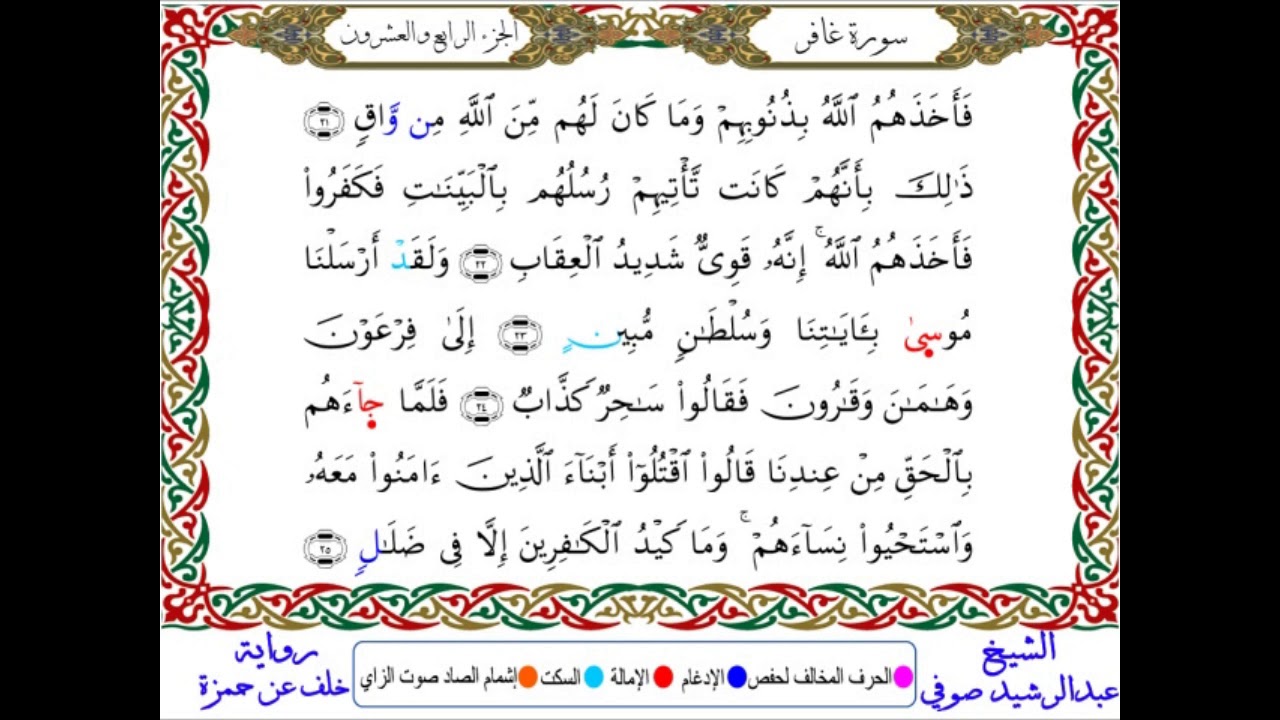 سورة غافر
الجزء الرابع والعشرون
فَأَخَذَهُمُ ٱللَّهُ بِذُنُوبِهِمۡ وَمَا كَانَ لَهُم مِّنَ ٱللَّهِ مِن وَّاقٖ ٢١
ذَٰلِكَ بِأَنَّهُمۡ كَانَت تَّأۡتِيهِمۡ رُسُلُهُم بِٱلۡبَيِّنَٰتِ فَكَفَرُواْ
فَأَخَذَهُمُ ٱللَّهُۚ إِنَّهُۥ قَوِيّٞ شَدِيدُ ٱلۡعِقَابِ ٢٢ وَلَقَدۡ أَرۡسَلۡنَا
مُوسَىٰ بِـَٔايَٰتِنَا وَسُلۡطَٰنٖ مُّبِينٍ ٢٣ إِلَىٰ فِرۡعَوۡنَ
وَهَٰمَٰنَ وَقَٰرُونَ فَقَالُواْ سَٰحِرٞ كَذَّابٞ ٢٤ فَلَمَّا جَآءَهُم
بِٱلۡحَقِّ مِنۡ عِندِنَا قَالُواْ ٱقۡتُلُوٓاْ أَبۡنَآءَ ٱلَّذِينَ ءَامَنُواْ مَعَهُۥ
وَٱسۡتَحۡيُواْ نِسَآءَهُمۡۚ وَمَا كَيۡدُ ٱلۡكَٰفِرِينَ إِلَّا فِي ضَلَٰلٖ ٢٥
الشيخ
عبدالرشيد صوفي
الحرف المخالف لحفص الإدغام الإمالة السكت إشمام الصاد صوت الزاي
رواية
خلف عن حمزة